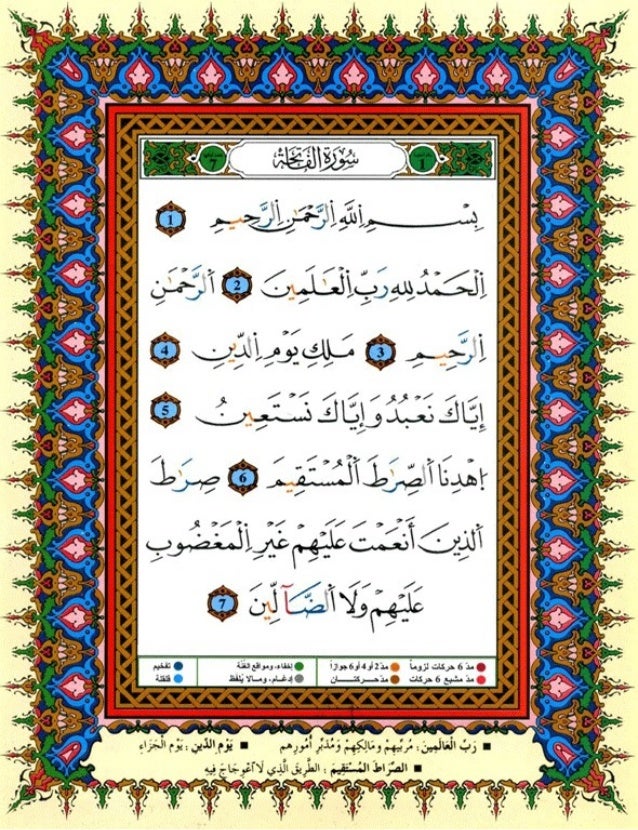 1 سُورَةُ الفَاتِحَةِ 7
بِسْمِ اِللَّهِ اِلرَّحْمَٰنِ اِلرَّحِيمِ 1
اِلْحَمْدُ لِلهِ رَبِّ اِلْعَٰلَمِينَ 2 اَلرَّحْمَٰنِ
اِلرَّحِيمِ 3 مَلِكِ يَوْمِ اِلدِّينِ 4
إِيَّاكَ نَعْبُدُ وَإِيَّاكَ نَسْتَعِينُ 5
اِهْدِنَا اَلصِّرَٰطَ اَلْمُسْتَقِيمَ 6 صِرَٰطَ
اَلذِينَ أَنْعَمْتَ عَلَيْهِمْ غَيْرِ اِلْمَغْضُوبِ
عَلَيْهِمْ وَلَا اَلضَّآلِّينَ 7
مدّ 6 حركات لزوماً مدّ 2 أو 4 أو 6 جوازاً إخفاء، ومواقع الغُنَّة تفخيم
مدّ مشبع 6 حركات مدّ حركتان إدغام، وما لا يُلفظ قلقلة
■ رَبِّ الْعَالَمِينَ : مُرَبِّيهِمْ وَمَالِكِهِمْ وَمُدَبِّرِ أُمُورِهِم ■ يَوْمِ الدِّينِ : يَوْمِ الْجَزَاءِ
■ الصِّرَاطَ المُسْتَقِيمَ : الطَّرِيقَ الَّذِي لَا اعْوِجَاجَ فِيهِ